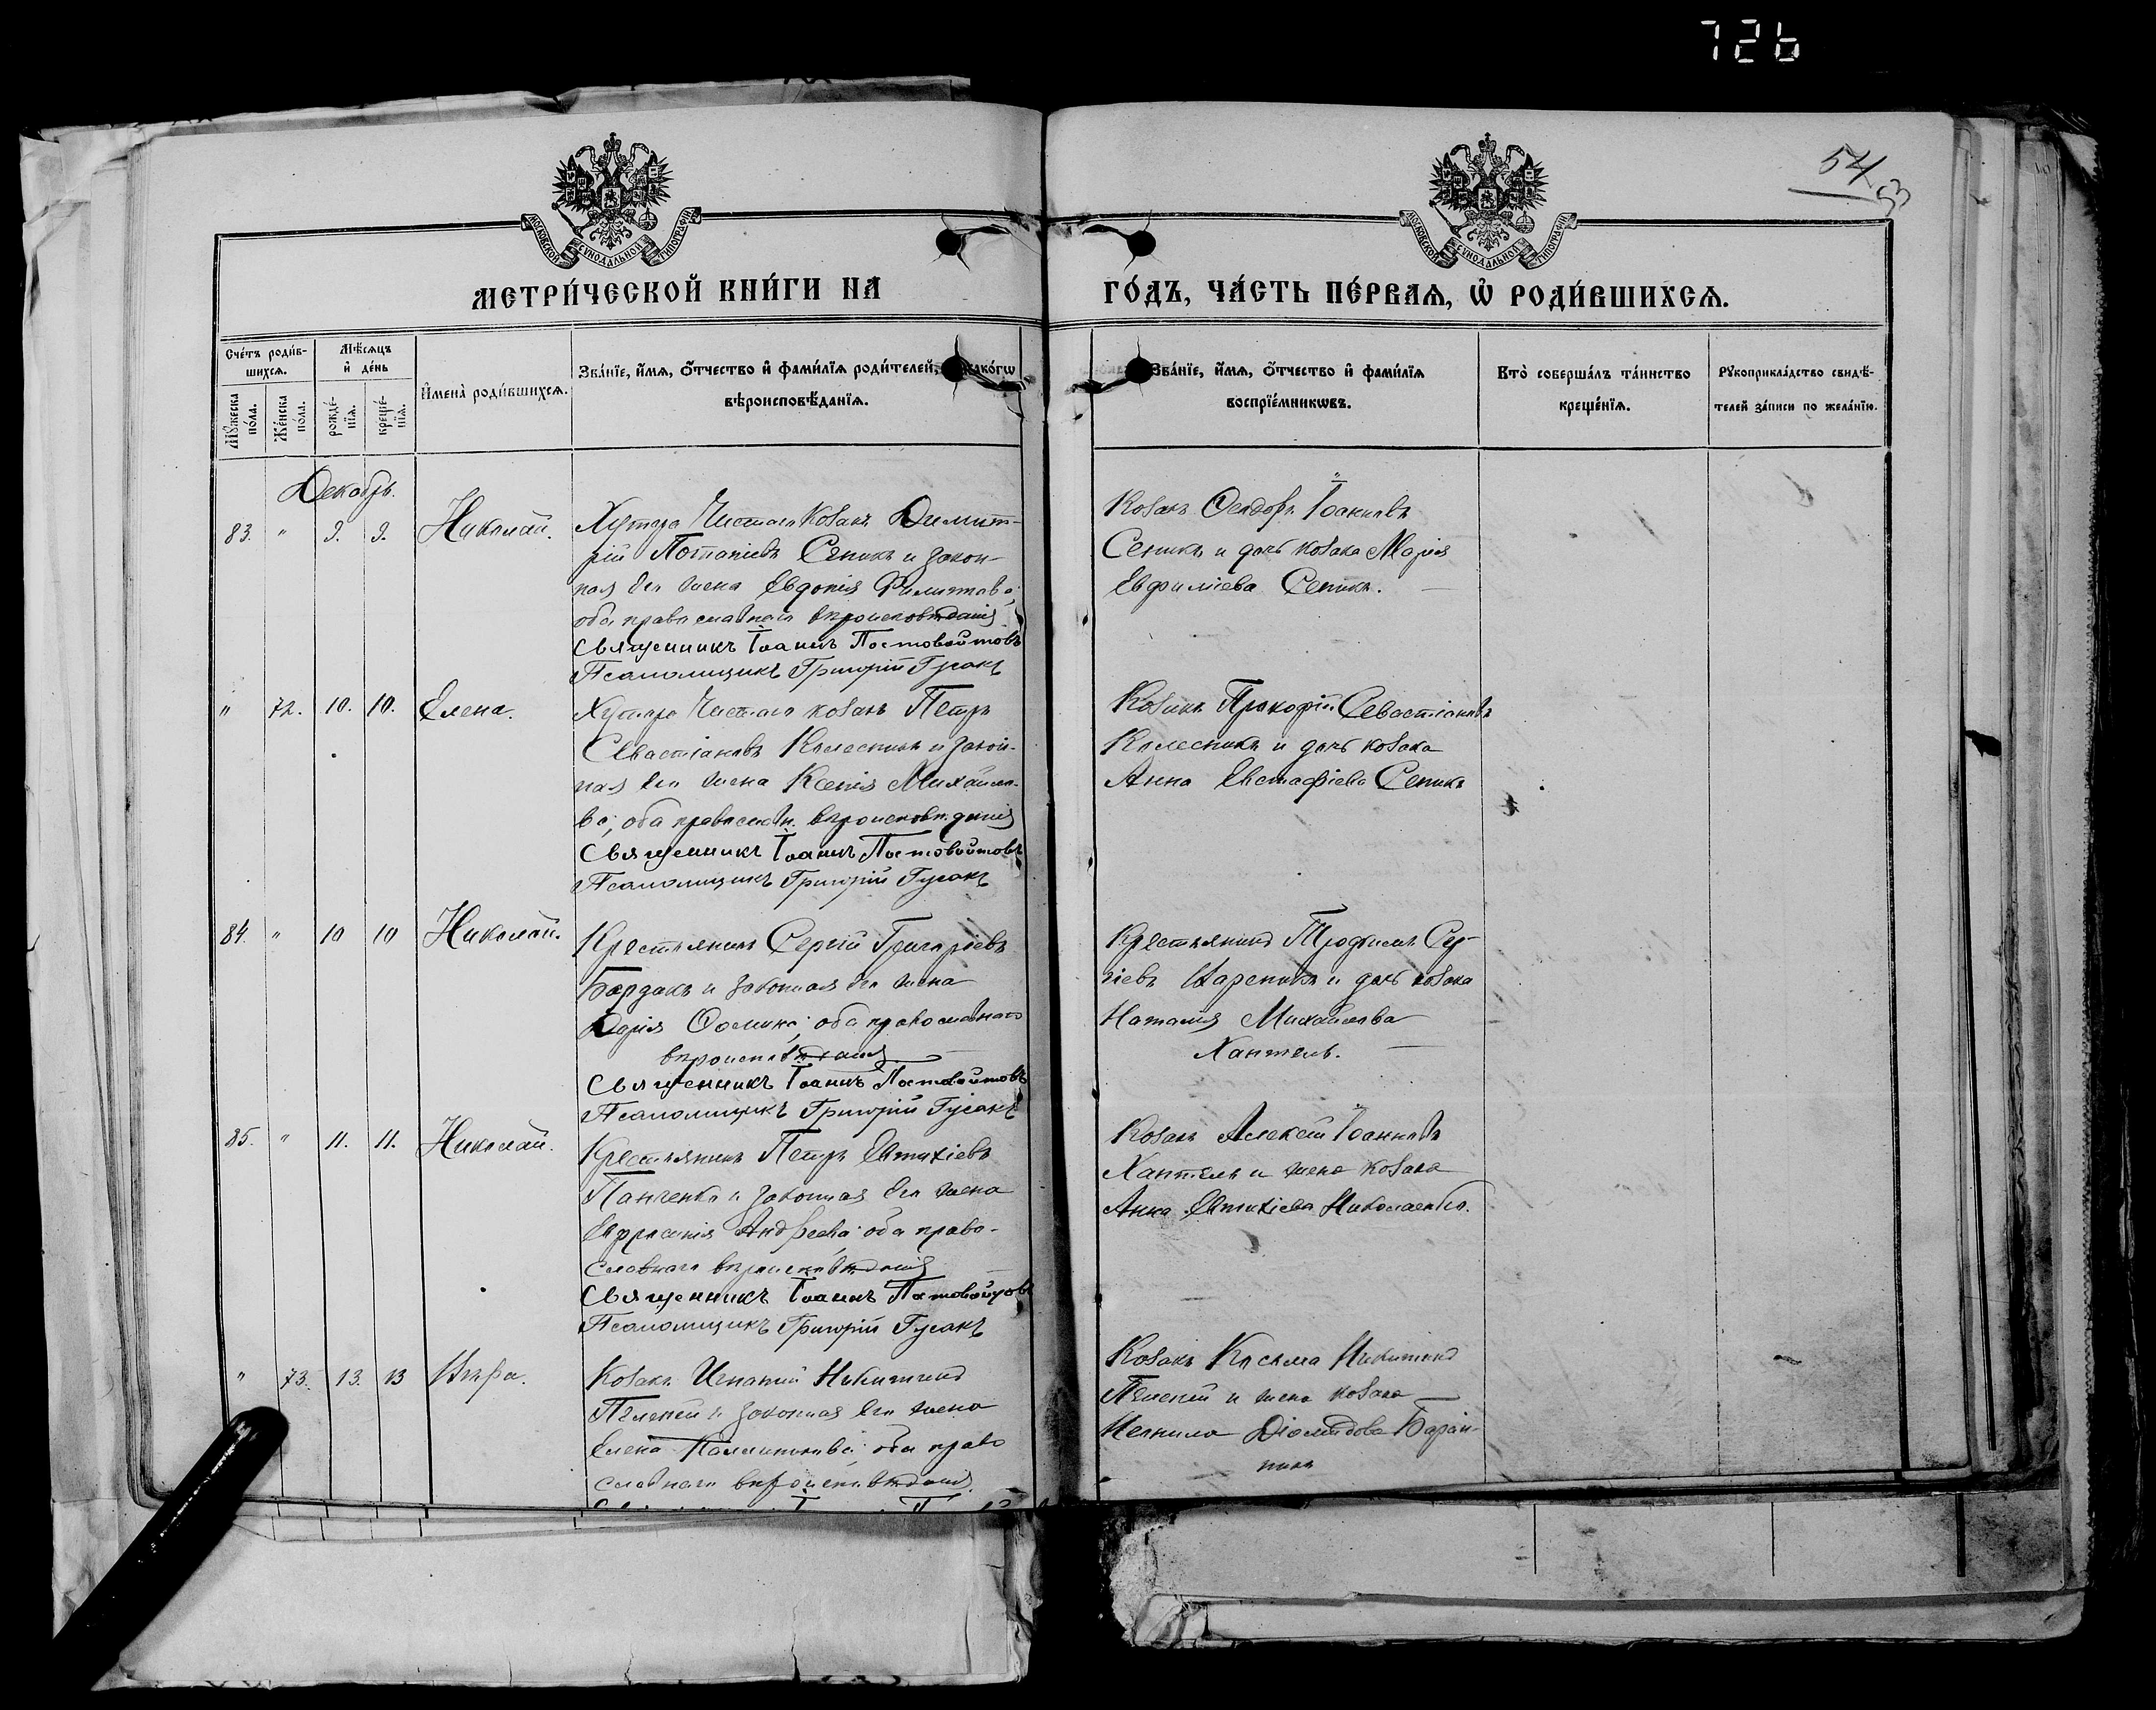 726
54
53
МОСКОВСКОЙ СѴНОДАЛЬНОЙ ТИПОГРАФІИ
МОСКОВСКОЙ СѴНОДАЛЬНОЙ ТИПОГРАФІИ
МЕТРИ́ЧЕСКОЙ КНИ́ГИ НА
ГО́ДЪ, ЧА́СТЬ ПЕ́РВАѦ, Ѡ҆ РОДИ́ВШИХСѦ.
Сче́тъ роди́в-
шихсѧ.
Мꙋ́жеска по́ла.
Же́нска по́ла.
Мѣ́сѧцъ
и҆ де́нь
рожде́-нїѧ.
креще́-нїѧ.
И҆мена̀ роди́вшихсѧ.
Зва́нїе, и҆́мѧ, о҆́тчество и҆ фами́лїѧ роди́телей, како́гѡ
вѣроисповѣ́данїѧ.
Зва́нїе, и҆́мѧ, о҆́тчество и҆ фами́лїѧ
воспрїе́мникѡвъ.
Кто̀ соверша́лъ та́инство
креще́нїѧ.
Рꙋкоприкла́дство свидѣ́-
телей за́писи по жела́нїю.
Декабрь.
83. " 9. 9. Николай.
Хутора Чистаго козакъ Димит-
рій Потапіевъ Сеникъ и закон-
ная его жена Евдокія Филиппова;
оба православнаго вѣроисповѣданія
Священникъ Іоаннъ Постовойтовъ
Псаломщикъ Григорій Гусакъ
Козакъ Ѳеодоръ Іоанновъ
Сеникъ и дочь козака Марія
Евфиміева Сеникъ.
" 72. 10. 10. Елена.
Хутора Чистаго козакъ Петръ
Севастіановъ Колесникъ и закон-
ная его жена Ксенія Михайло-
ва; оба православн. вѣроисповѣданія
Священникъ Іоаннъ Постовойтовъ
Псаломщикъ Григорій Гусакъ
Козакъ Прокофій Севастіановъ
Колесникъ и дочь козака
Анна Евстафіева Сеникъ
84. " 10 10 Николай.
Крестьянинъ Сергій Григоріевъ
Бардакъ и законная его жена
Дарія Ѳомина; оба православнаго
вѣроисповѣданія
Священникъ Іоаннъ Постовойтовъ
Псаломщикъ Григорій Гусакъ
Крестьянинъ Трофимъ Сер-
гіевъ и дочь козака
Наталія Михайлова
Хантель.
85. " 11. 11. Николай.
Крестьянинъ Петръ Евтихіевъ
Панченко и законная его жена
Евфросинія Андреева; оба право-
славнаго вѣроисповѣданія
Священникъ Іоаннъ Постовойтовъ
Псаломщикъ Григорій Гусакъ
Козакъ Алексѣй Іоанновъ
Хантель и жена козака
Анна Евтихіева Николаенко.
" 73. 13. 13
Козакъ Игнатій Никитинъ
и законная его жена
Елена оба право
славнаго вѣроисповѣданія.
Козакъ Косьма Никитинъ
и жена козака
Діомидова Баран-
никъ